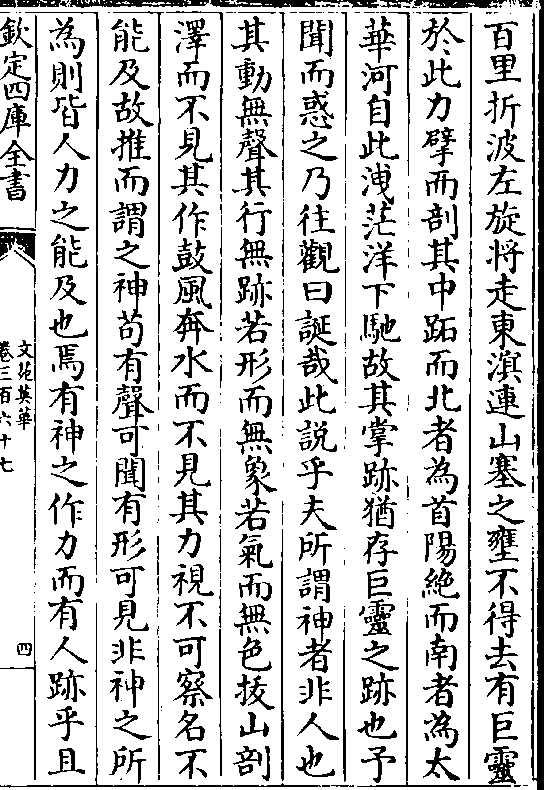 百里折波左旋将走東溟連山塞之壅不得去有巨靈
於此力擘而剖其中跖而北者為首陽絶而南者為太
華河自此洩茫洋下馳故其掌跡猶存巨靈之跡也予
聞而惑之乃往觀曰誕哉此説乎夫所謂神者非人也
其動無聲其行無跡若形而無象若氣而無色拔山剖
澤而不見其作鼓風奔水而不見其力視不可察名不
能及故推而謂之神苟有聲可聞有形可見非神之所
為則皆人力之能及也焉有神之作力而有人跡乎且
欽定四庫全書
文苑英華
卷三百六十七
四